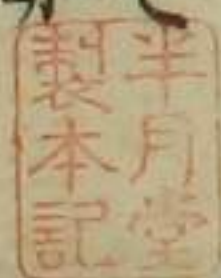 半月堂
製本記